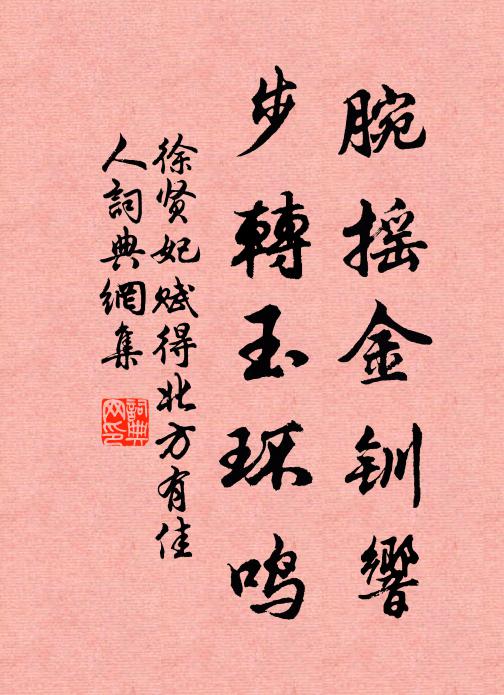 腕摇金钏響
步轉玉环鸣
徐贤妃赋得北方有佳
人詞典網集
詞典网印